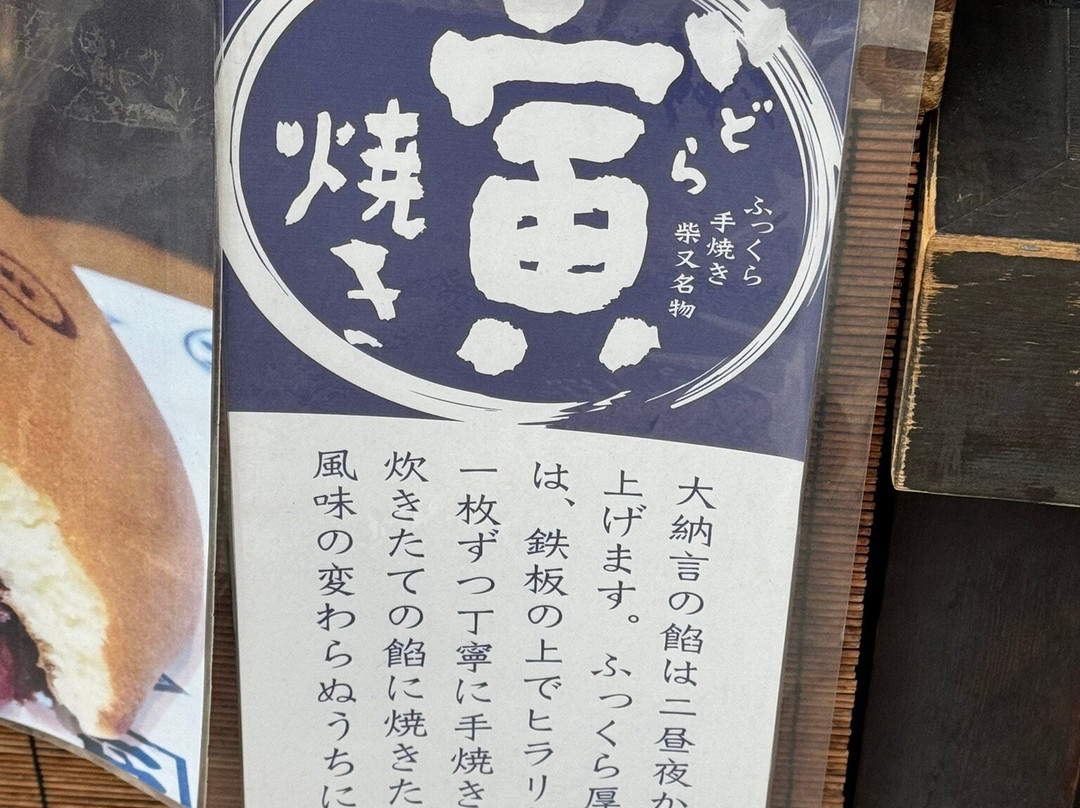 ふっくら
手焼き
柴又名物
どら
寅
焼き
大納言の餡は二昼夜か
上げます。ふっくら厚
は、鉄板の上でヒラリ
一枚ずつ丁寧に手焼き
炊きたての餡に焼きた
風味の変わらぬうちに